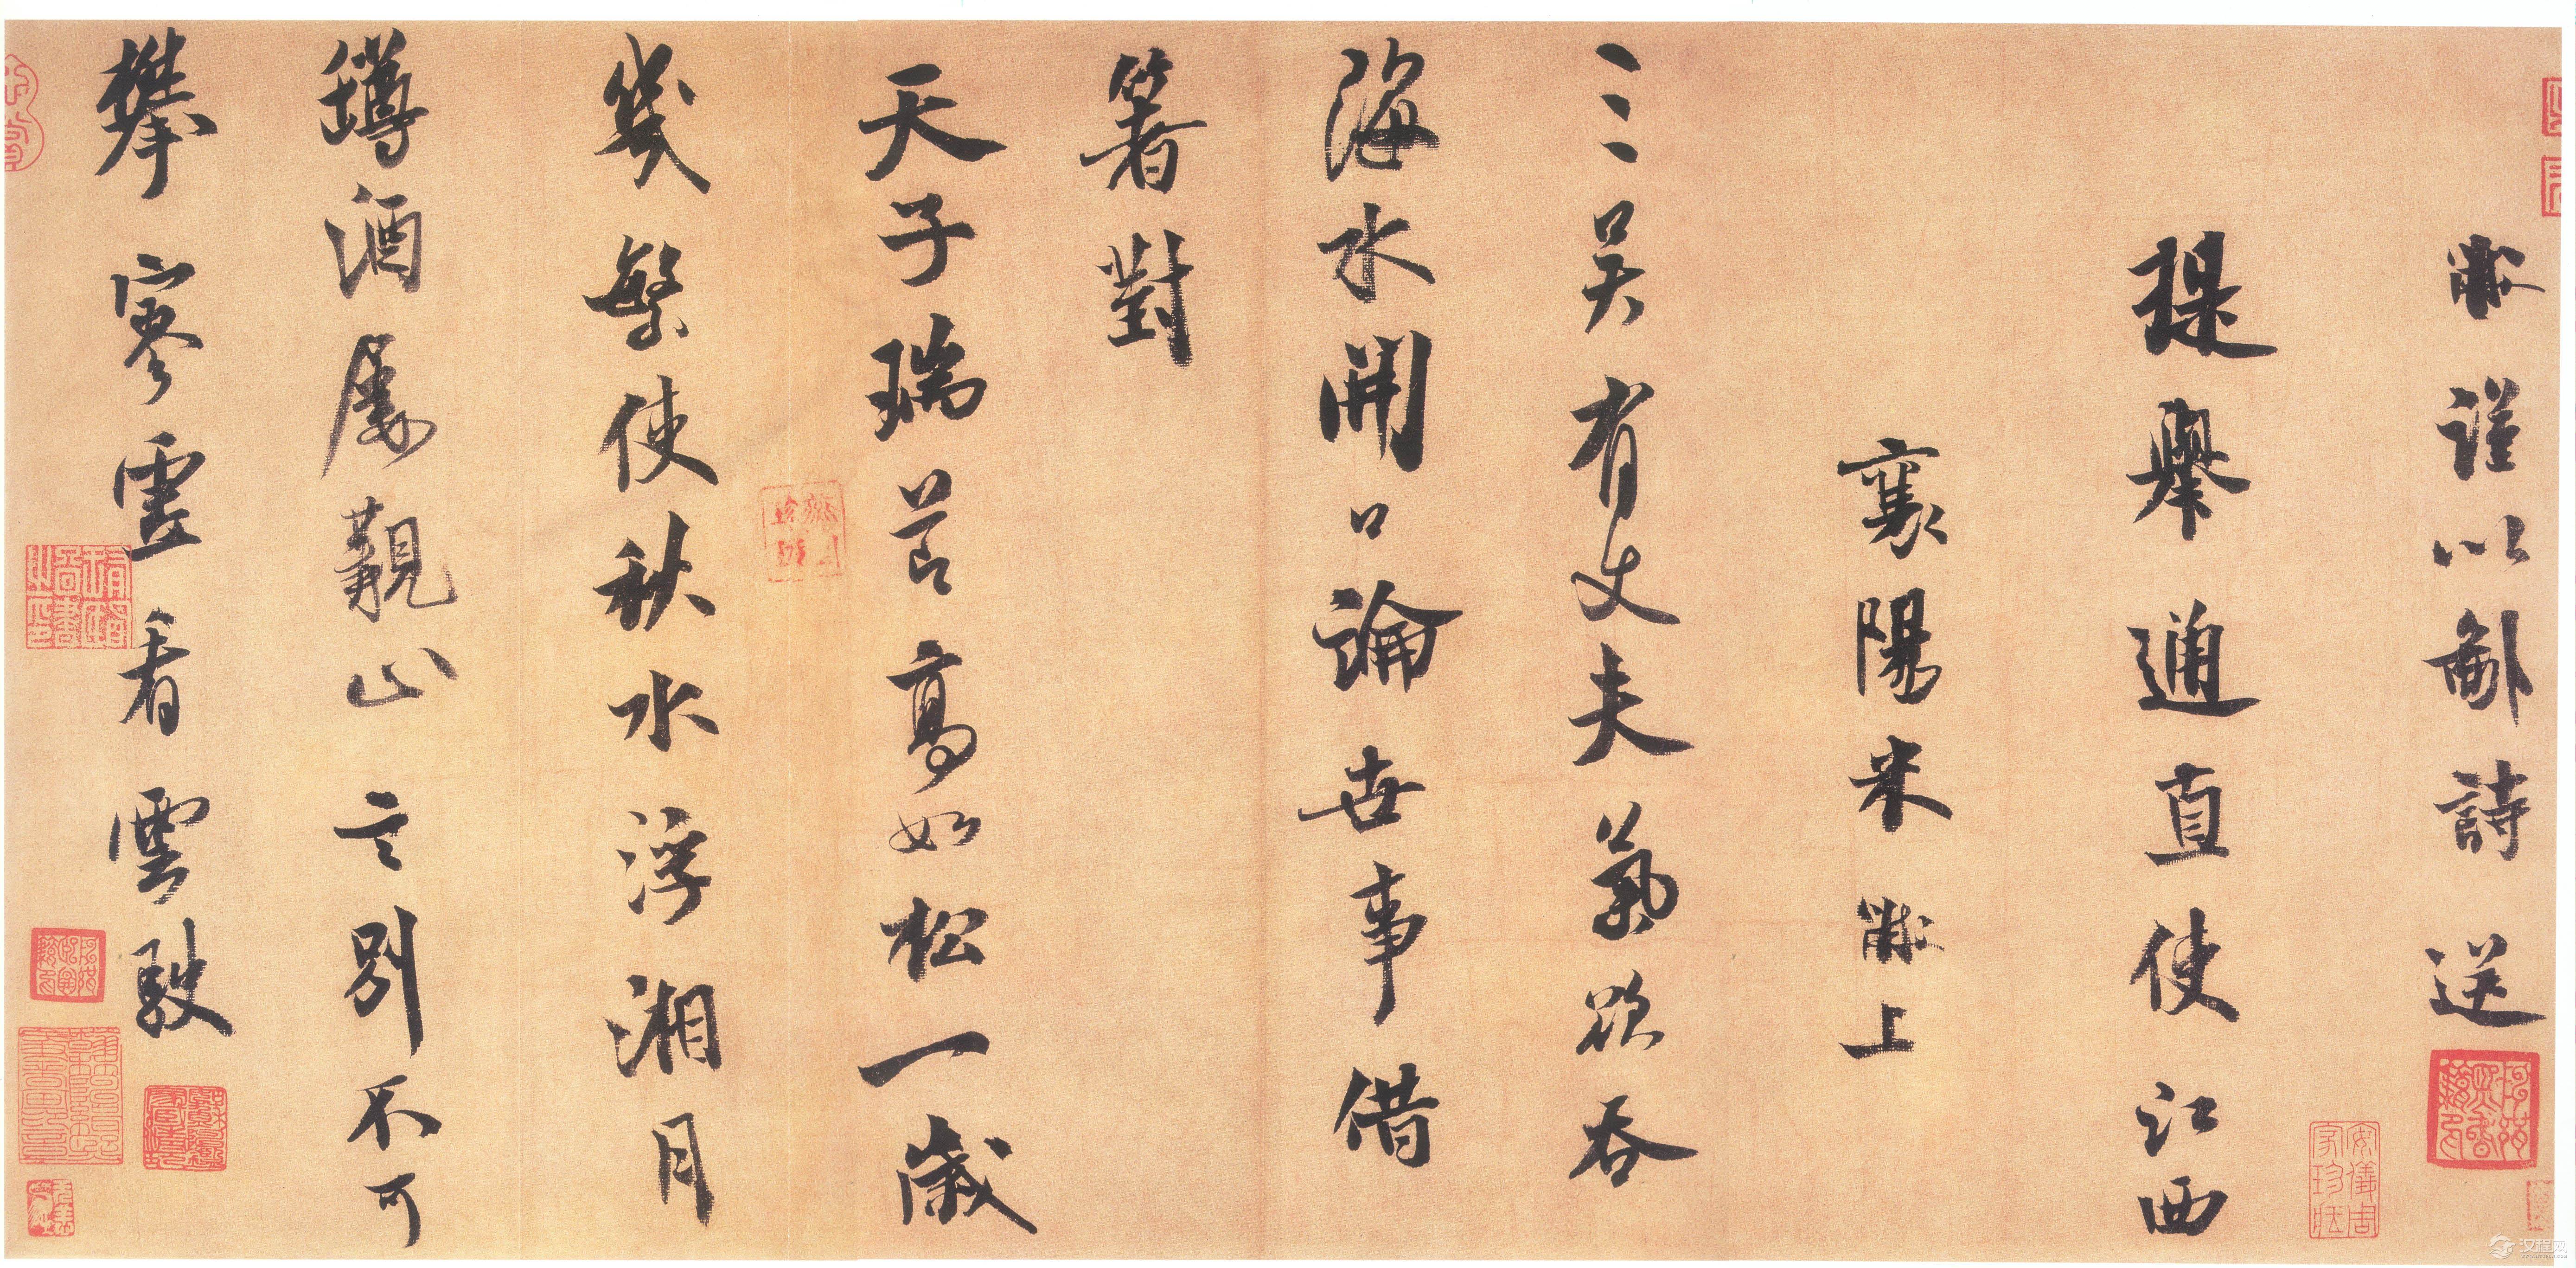 黻謹以鄙詩送
提舉通直使江西
襄陽米黻上
三吳有丈夫氣欲吞
海水開口論世事借
箸對
天子瑞節高如松一歲
幾繁使秋水浮湘月
罇酒屢覯止言別不可
攀寥虛看雲駛
安儀周家珍藏
汉程网